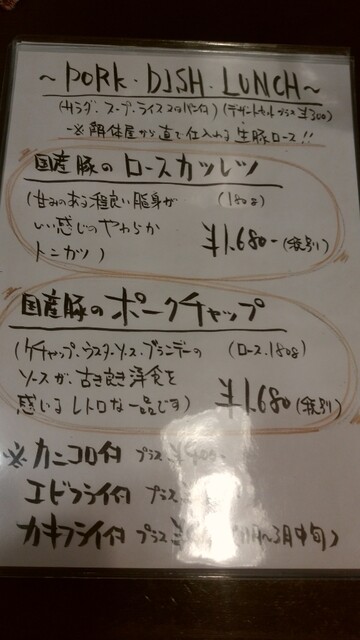 ~ PORK・DISH・LUNCH ~
(サラダ・スープ・ライス又はパン付) (デザートセット プラス ¥300)
※解体屋から直で仕入れる生豚ロース!!
国産豚のロースカツレツ
(甘みのある程良い脂身が (180g)
いい感じのやわらか ¥1,680- (税別)
トンカツ)
国産豚のポークチャップ
(ケチャップ・ウスターソース・ブランデーの (ロース・180g)
ソースが、古き良き洋食を
感じるレトロな一品です) ¥1,680 (税別)
※カニコロ付 プラス
エビフライ付 プラス
カキフライ付 プラス 月~3月中旬)